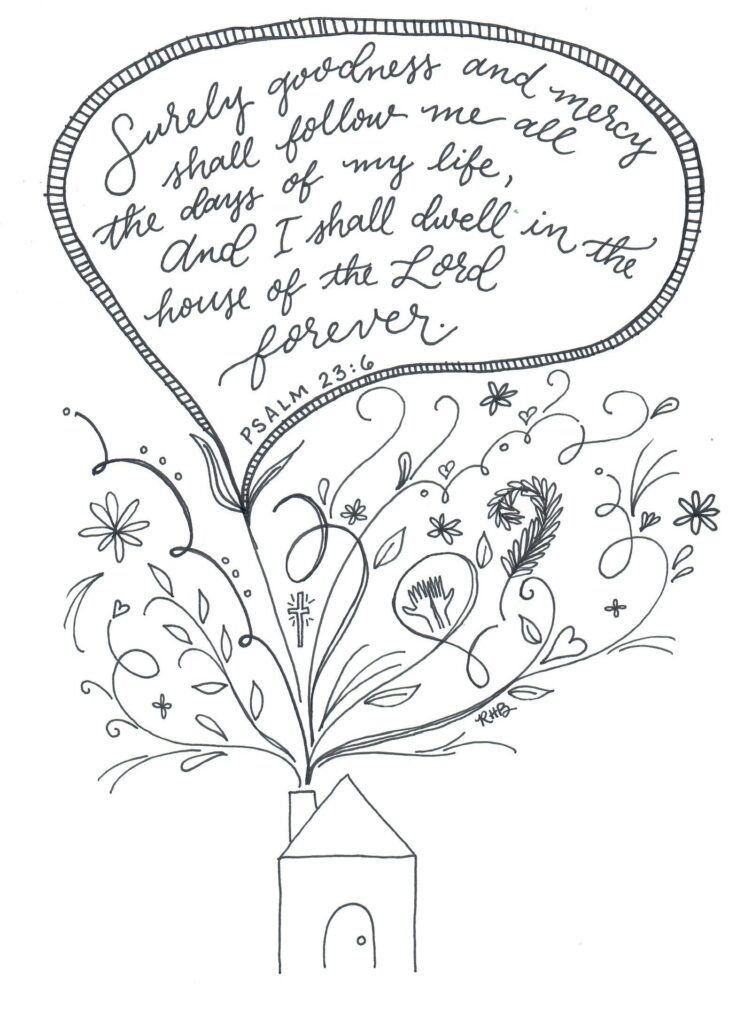 Surely goodness and mercy
shall follow me all
the days of my life,
And I shall dwell in the
house of the Lord
forever.
PSALM 23:6
RHB